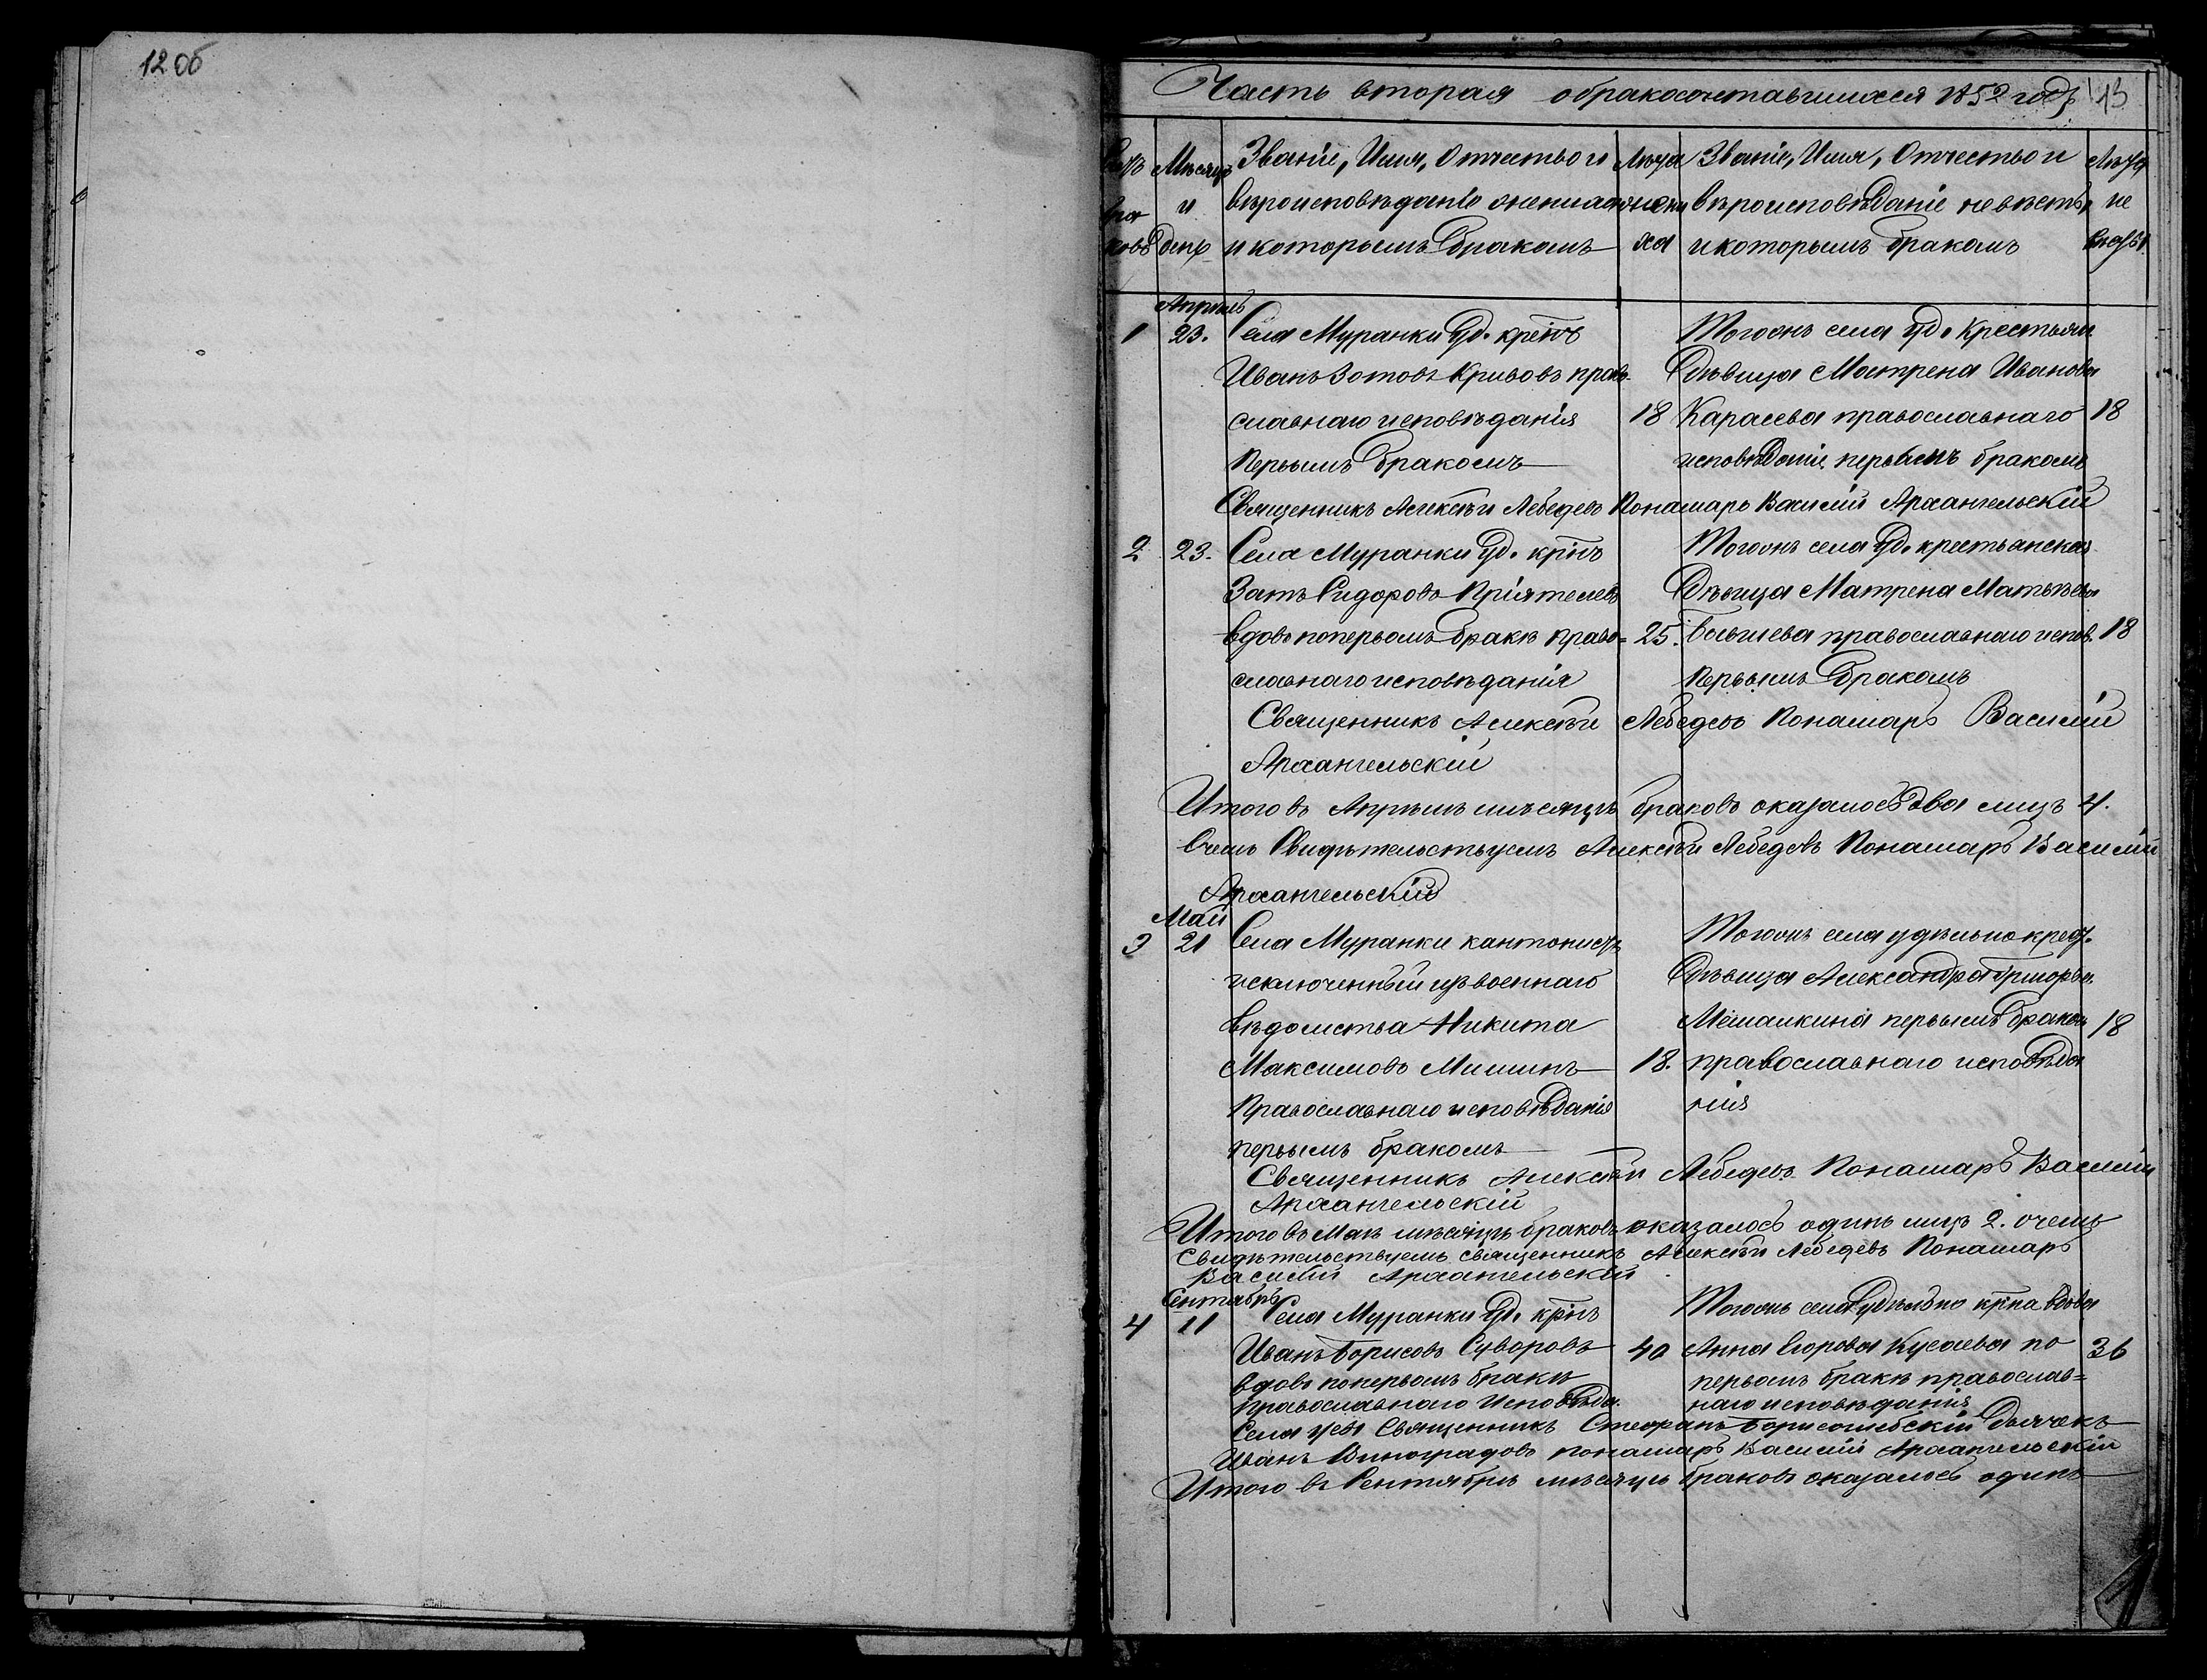 12 об
Часть вторая о бракосочетавшихся 1852 годъ 13
Мѣсяцъ и день
Званіе, Имя, Отчество и вѣроисповѣданіе жениха и которымъ бракомъ
Лѣта жениха
Званіе, Имя, Отчество и вѣроисповѣданіе невѣсты и которымъ бракомъ
Лѣта невѣсты
Апрѣль
1 23. Села Муранки Уд. крестъ
Иванъ Зотовъ Кривовъ право-
славнаго исповѣданія 18
Первымъ бракомъ
Тогожъ села уд. крестьян.
Дѣвица Матрена Иванова
Карасева православнаго 18
исповѣданіе первымъ бракомъ
Священникъ Алексѣй Лебедевъ Понамарь Василій Архангельскій
2 23. Села Муранки Уд. кр-нъ
Затъ Сидоровъ Пріятелевъ
вдовъ поперьвомъ бракѣ право= 25.
славнаго исповѣданія
Тогожъ села Уд. крестьянская
Дѣвица Матрена Матвѣева
православнаго испов. 18
Первымъ бракомъ
Священникъ Алексѣй Лебедевъ Понамарь Василій
Архангельскій
Итого въ Апрѣлѣ мѣсяцѣ браковъ оказалось два лицъ 4.
Вчемъ Свидѣтельствуемъ Алексѣй Лебедевъ Понамарь Василій
Архангельскій
Май
3 21 Села Муранки кантонистъ
исключенный изъ военнаго
вѣдомства Никита
Максимовъ Мишинъ 18.
Православнаго исповѣданія
первымъ бракомъ
Тогожъ села удѣльно крест.
Дѣвица Александра Григорьев.
первымъ бракомъ 18
православнаго исповѣда
нія
Священникъ Алексѣй Лебедевъ Понамарь Василій
Архангельскій
Итого въ Маѣ мѣсяцѣ браковъ оказалось одинъ лицъ 2. очемъ
Свидѣтельствуемъ священникъ Алексѣй Лебедевъ Понамарь
Василій Архангельскій
Сентябрь
4 11 Села Муранки Уд. кр-нъ
Иванъ Борисовъ Суворовъ 40
вдовъ поперьвомъ браки
православнаго Исповѣда.
Тогожъ села Удѣльно кр-на вдова
Анна Егорова Кусаева по 36
первомъ бракѣ православ=
наго исповѣданія
Села Усы Священникъ Стефанъ Борисоглебскій Дьячекъ
Иванъ Виноградовъ понамарь Василій Архангельскій
Итого въ Сентябрѣ мѣсяцѣ браковъ оказалось одинъ